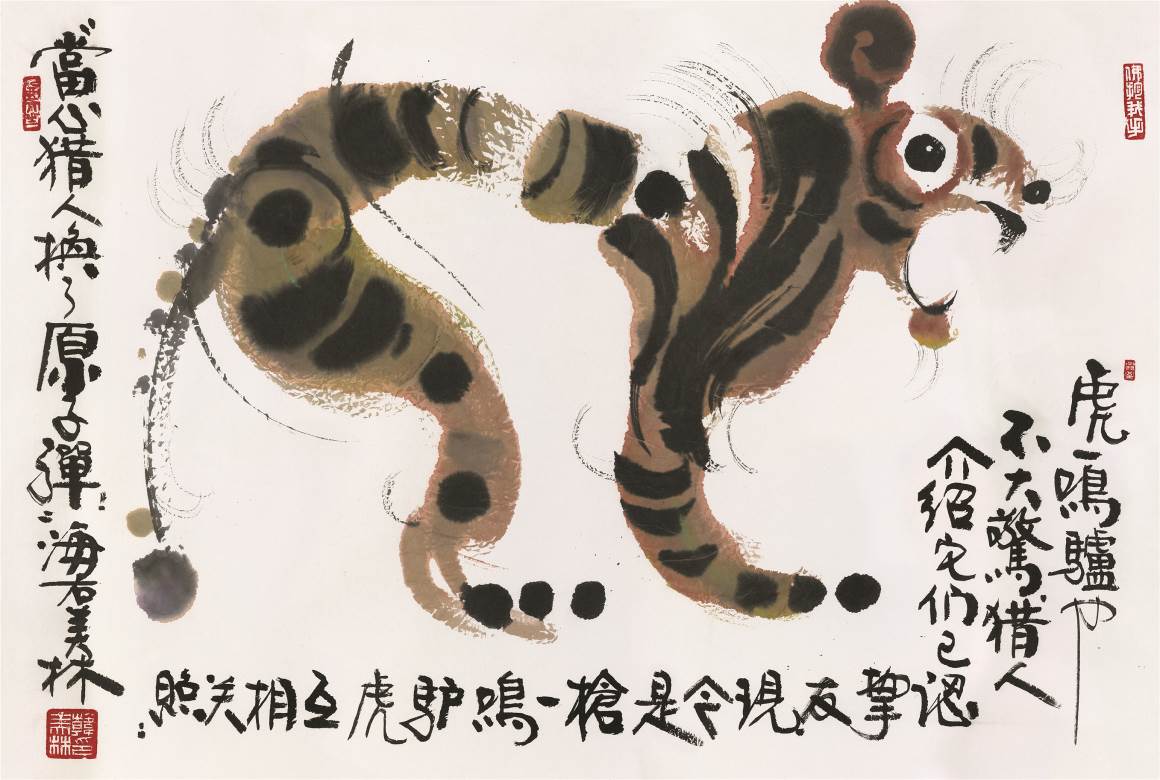 虎一鳴驢也
不大驚猎人
介绍它们已
認摯友現今是槍一鳴驴虎互相关照
當心猎人換了原子彈 海若美林
韓美林印